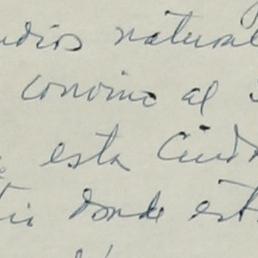 udios natural
convino al
esta Ciud
donde est